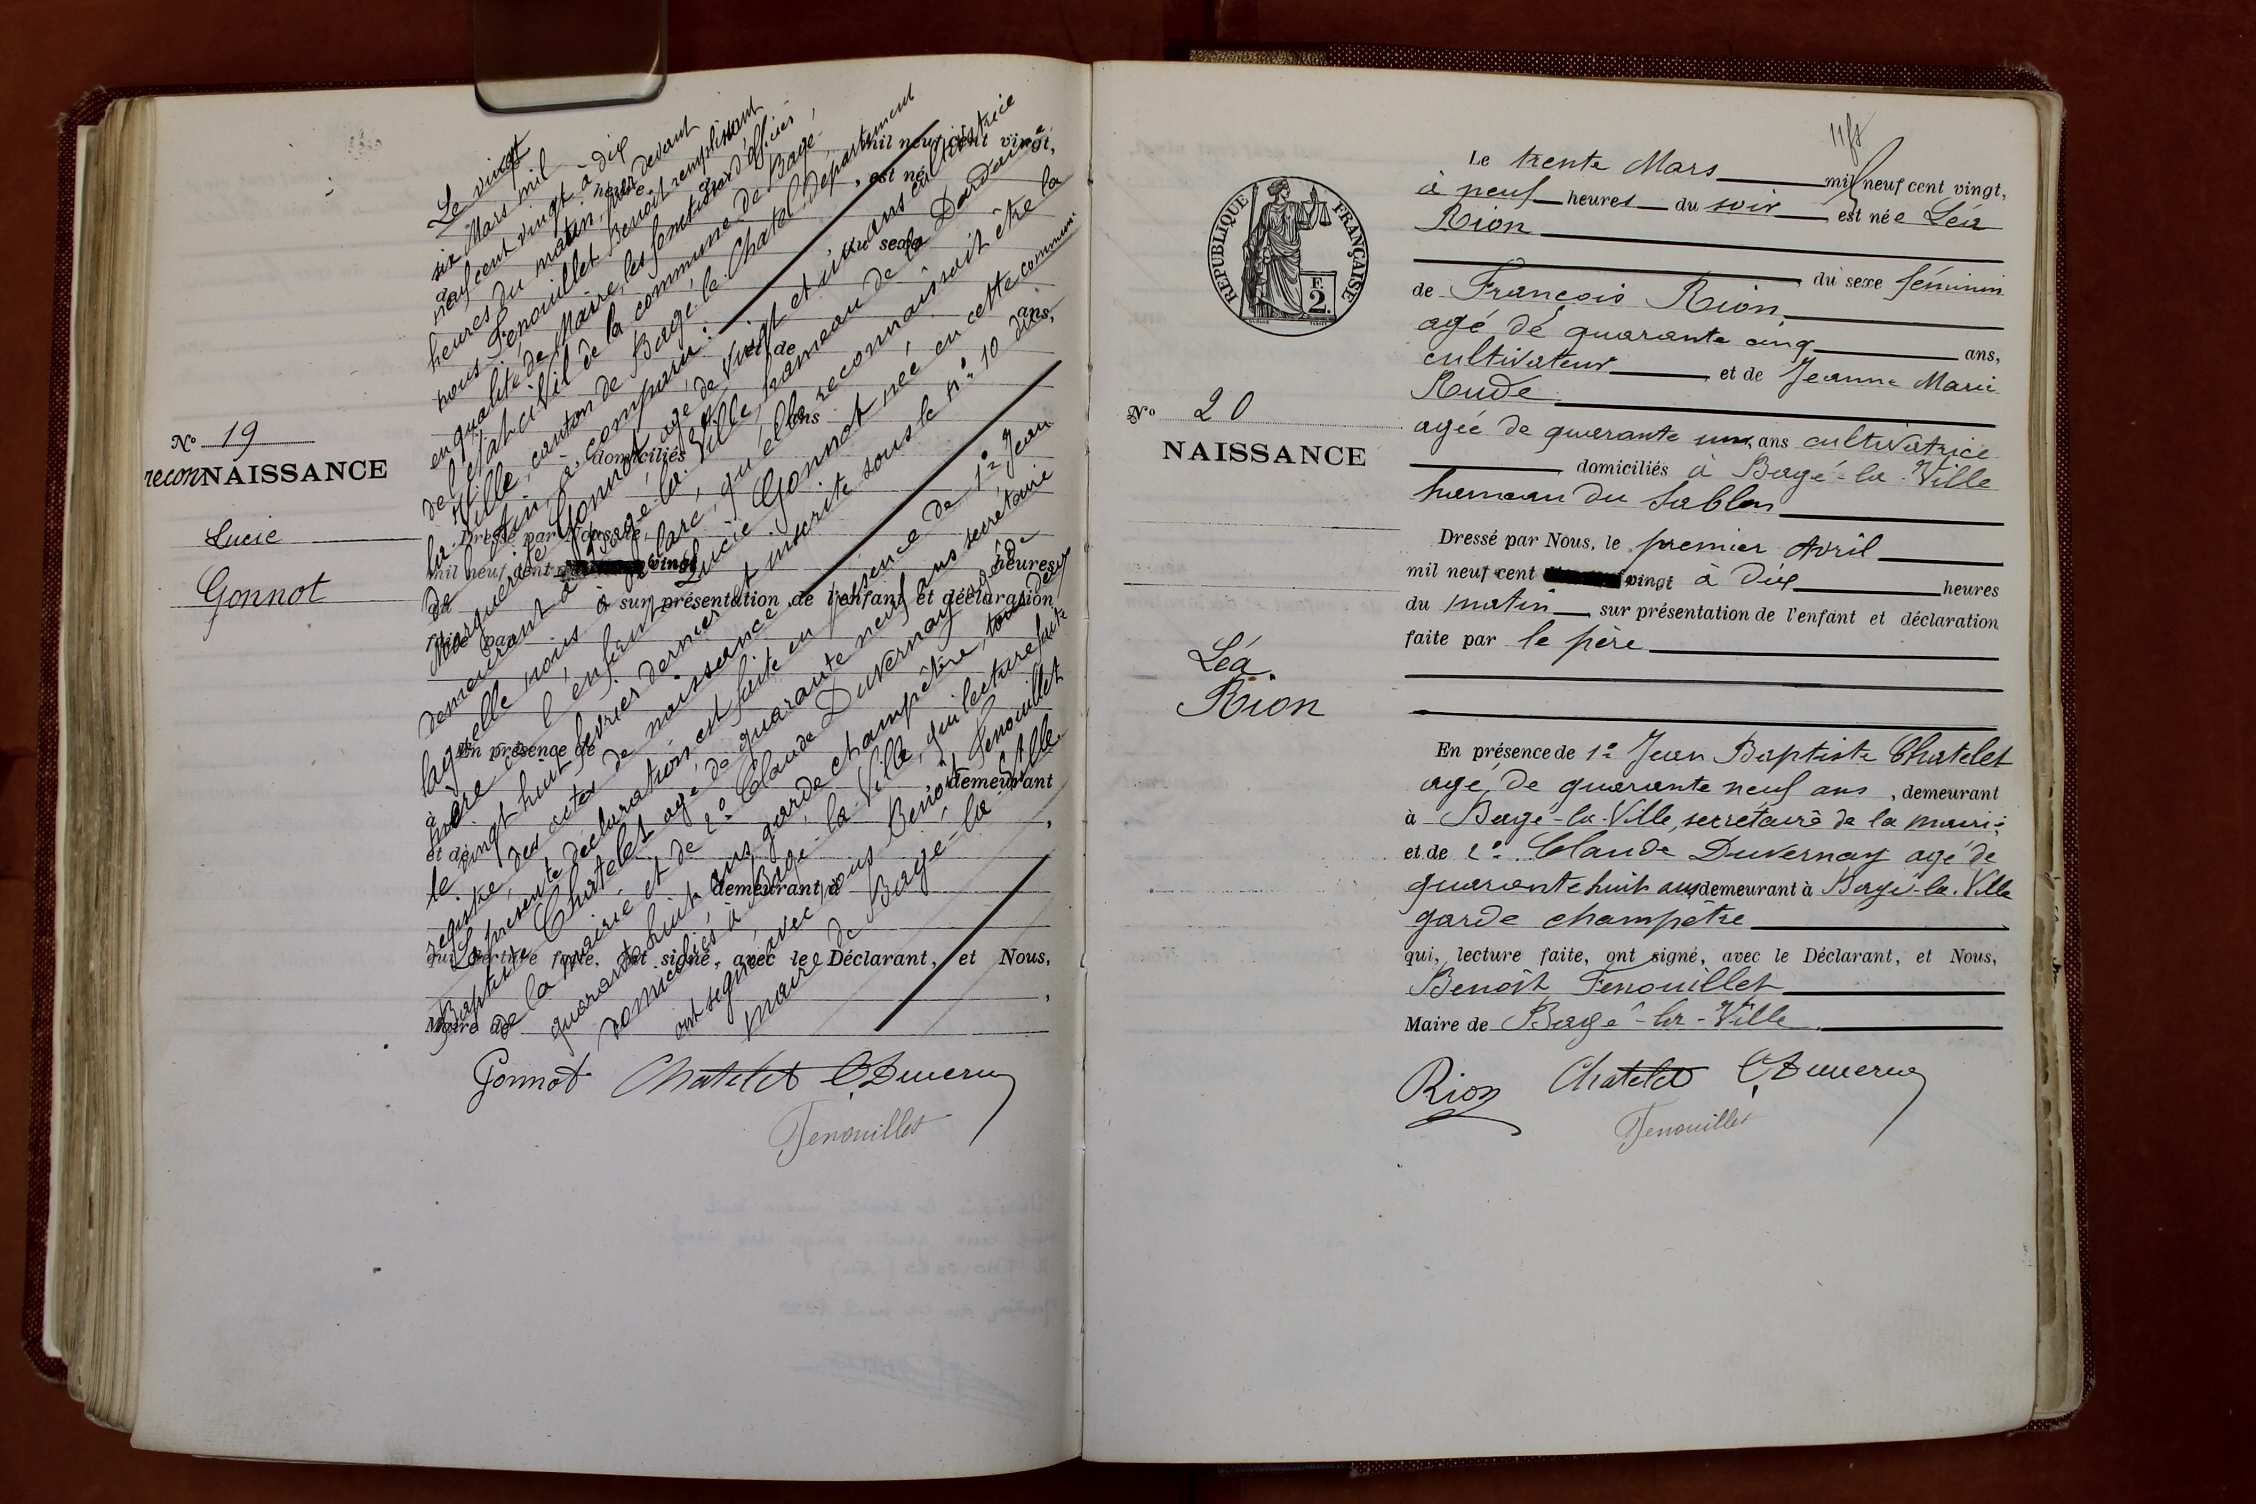 N° 19
reconNAISSANCE
Lucie
Gonnot
Le vingt
six Mars mil
neuf cent vingt à dix
heures du matin, par devant
nous Fenouillet Benoît remplissant
en qualité de Maire, les fonctions d'officier
de l'état civil de la commune de Bagé-
la-Ville, canton de Bagé-le-Chatel, département
de l'Ain, a comparu :
Marguerite Gonnot, agée de vingt et un ans cultivatrice
demeurant à Bagé-la-Ville, hameau de la
laquelle nous a déclaré, qu'elle reconnaissait être la
mère de l'enfant Lucie Gonnot née en cette commune
le vingt huit février dernier et inscrite sous le n° 10 du
registre des actes de naissance.
La présente déclaration est faite en présence de 1° Jean
Baptiste Chatelet agé de quarante neuf ans secrétaire
de la mairie et de 2° Claude Duvernay agé de
quarante huit ans garde champêtre, tous deux
domiciliés à Bagé-la-Ville, qui lecture faite
ont signé avec nous Benoît Fenouillet
maire de Bagé-la-Ville.
mil neuf cent vingt,
, est né
du sexe
ans,
et de
ans
domiciliés
Dressé par Nous, le
mil neuf cent vingt
heures
sur présentation de l'enfant et déclaration
faite par
En présence de
demeurant
à
et de
demeurant à
qui, lecture faite, ont signé, avec le Déclarant, et Nous,
Maire de
Gonnot Chatelet C. Duvernay
Fenouillet
RÉPUBLIQUE FRANÇAISE
F.
2.
N° 20
NAISSANCE
Léa
Rion
Le trente Mars mil neuf cent vingt,
à neuf heures du soir est née Léa
Rion
du sexe féminin
de François Rion
agé de quarante cinq ans,
cultivateur et de Jeanne Marie
Rude
agée de quarante un ans cultivatrice
domiciliés à Bagé-la-Ville
hameau du Sablon
Dressé par Nous, le premier Avril
mil neuf cent vingt à dix heures
du matin sur présentation de l'enfant et déclaration
faite par le père
En présence de 1° Jean Baptiste Chatelet
agé de quarante neuf ans, demeurant
à Bagé-la-Ville, secrétaire de la mairie
et de 2° Claude Duvernay agé de
quarante huit ans demeurant à Bagé-la-Ville
garde champêtre
qui, lecture faite, ont signé, avec le Déclarant, et Nous,
Benoît Fenouillet
Maire de Bagé-la-Ville
Rion Chatelet C. Duvernay
Fenouillet